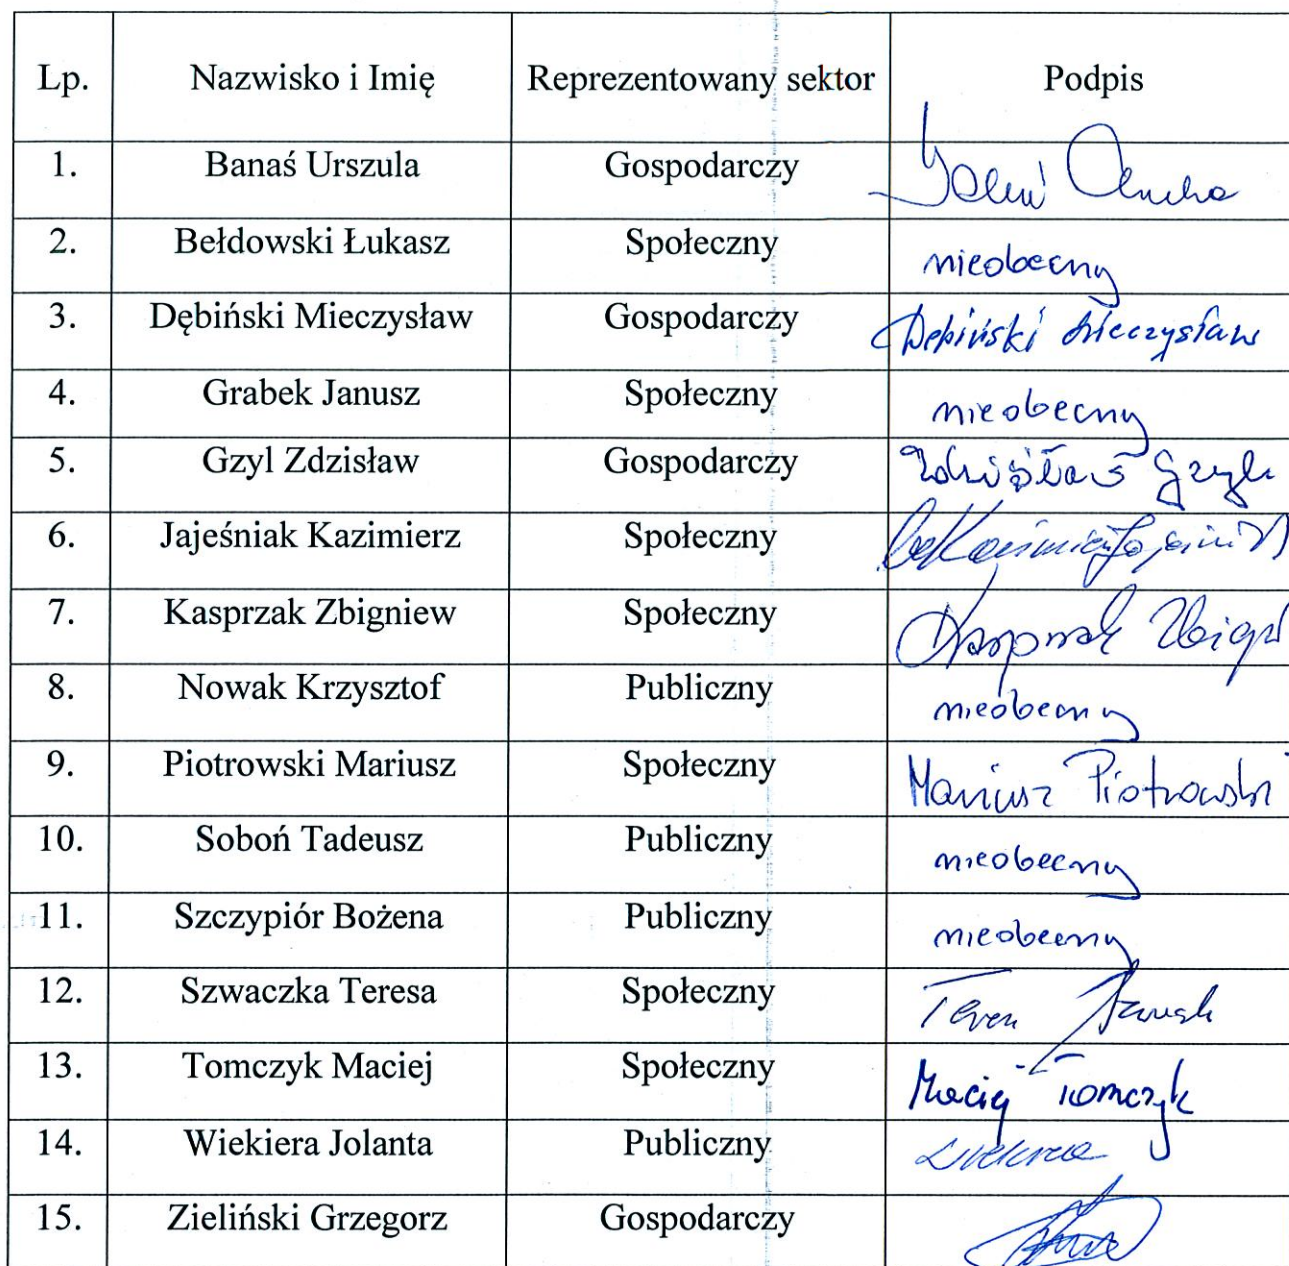 Lp. Nazwisko i Imię Reprezentowany sektor Podpis
1. Banaś Urszula Gospodarczy
2. Bełdowski Łukasz Społeczny nieobecny
3. Dębiński Mieczysław Gospodarczy Dębiński Mieczysław
4. Grabek Janusz Społeczny nieobecny
5. Gzyl Zdzisław Gospodarczy Zdzisław Gzyl
6. Jajeśniak Kazimierz Społeczny
7. Kasprzak Zbigniew Społeczny Kasprzak
8. Nowak Krzysztof Publiczny nieobecny
9. Piotrowski Mariusz Społeczny Mariusz Piotrowski
10. Soboń Tadeusz Publiczny nieobecny
11. Szczypiór Bożena Publiczny nieobecny
12. Szwaczka Teresa Społeczny
13. Tomczyk Maciej Społeczny Maciej Tomczyk
14. Wiekiera Jolanta Publiczny
15. Zieliński Grzegorz Gospodarczy